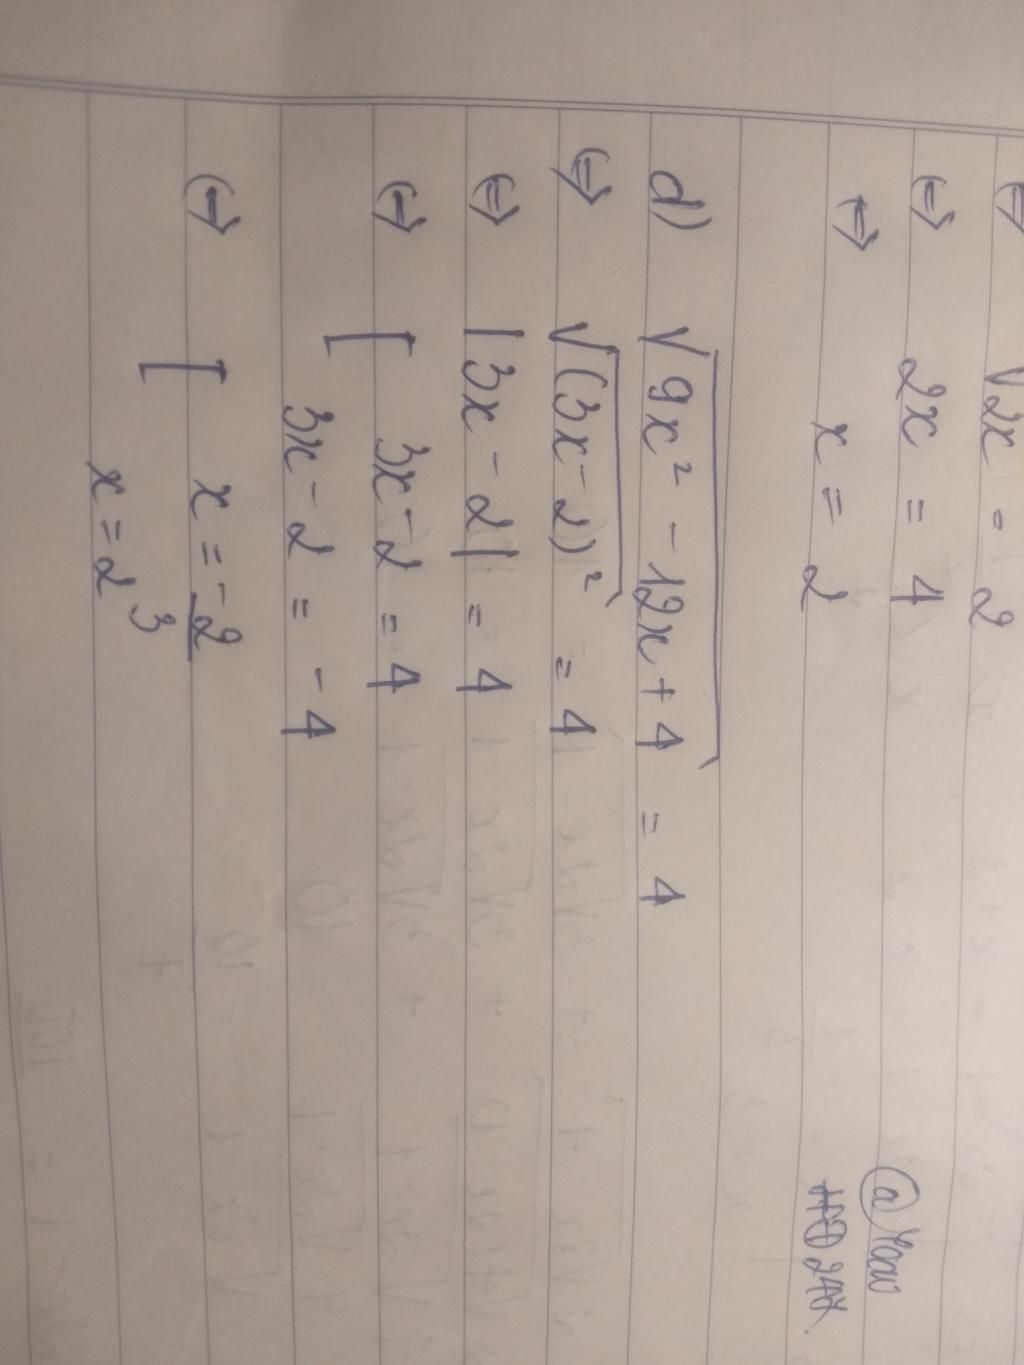 ⇔ √2x = 2
⇔ 2x = 4
⇔ x = 2
d) √(9x² - 12x + 4) = 4
⇔ √((3x - 2)²) = 4
⇔ |3x - 2| = 4
⇔ [ 3x - 2 = 4
3x - 2 = -4
⇔ [ x = -2/3
x = 2